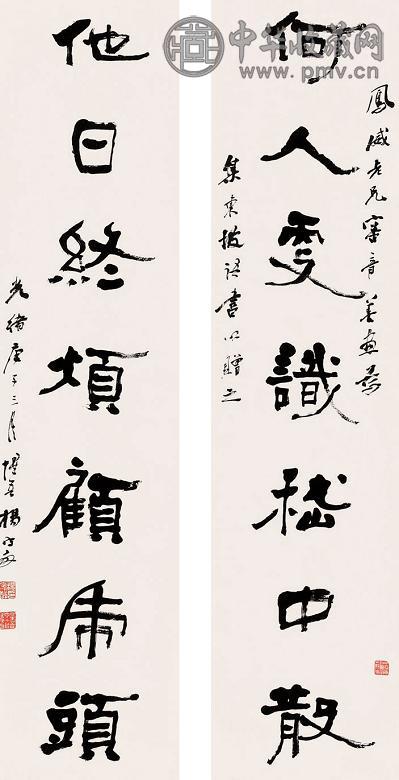 中华收藏网
www.pmv.cn
鳳威老兄審音善畫爲
何人更識嵇中散
集東坡語書以贈之
他日終煩顧虎頭
光緒庚子三月惺吾楊守敬